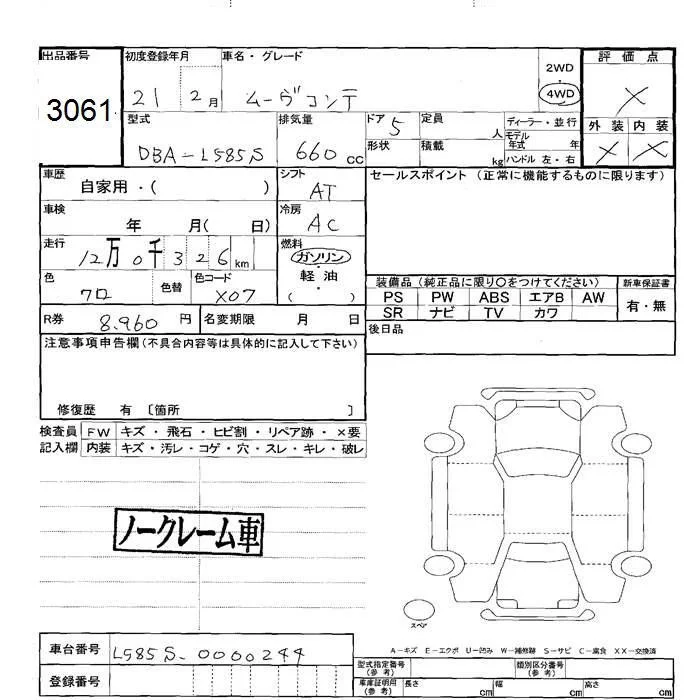 出品番号 初度登録年月 車名・グレード 評価点
3061 21 2月 ムーヴコンテ 2WD 4WD ×
型式 排気量 ドア 定員 ディーラー・並行 外装 内装
DBA-L585S 660cc 5 人 モデル年式 年 × ×
形状 積載 kg ハンドル 左・右
車歴 シフト セールスポイント (正常に機能するものに限ります)
自家用・( ) AT
車検 冷房
年 月( 日) AC
走行 燃料
12万0千326km ガソリン・軽油・( )
色 色替 色コード 装備品(純正品に限り○をつけてください) 新車保証書
クロ X07 PS PW ABS エアB AW 有・無
SR ナビ TV カワ
R券 8.960円 名変期限 月 日 後日品
注意事項申告欄(不具合内容等は具体的に記入して下さい)
修復歴 有 〔箇所 〕
検査員 FW キズ・飛石・ヒビ割・リペア跡・×要
記入欄 内装 キズ・汚レ・コゲ・穴・スレ・キレ・破レ
ノークレーム車
スペア
A-キズ E-エクボ U-凹み W-補修跡 S-サビ C-腐食 XX-交換済
車台番号 L585S-0000244 型式指定番号(参考) 類別区分番号(参考)
登録番号 車庫証明用(参考) 長さ cm 幅 cm 高さ cm